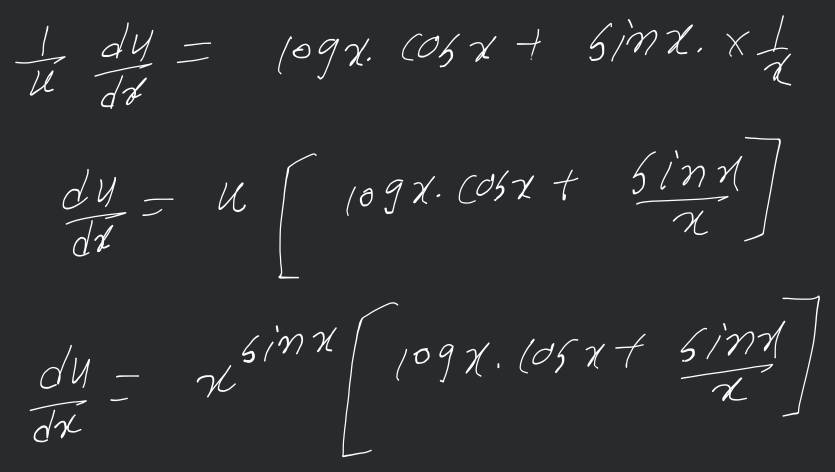 1/u du/dx = logx. cosx + sinx. × 1/x
du/dx = u [ logx. cosx + sinx/x ]
du/dx = x^sinx [ logx. cosx + sinx/x ]